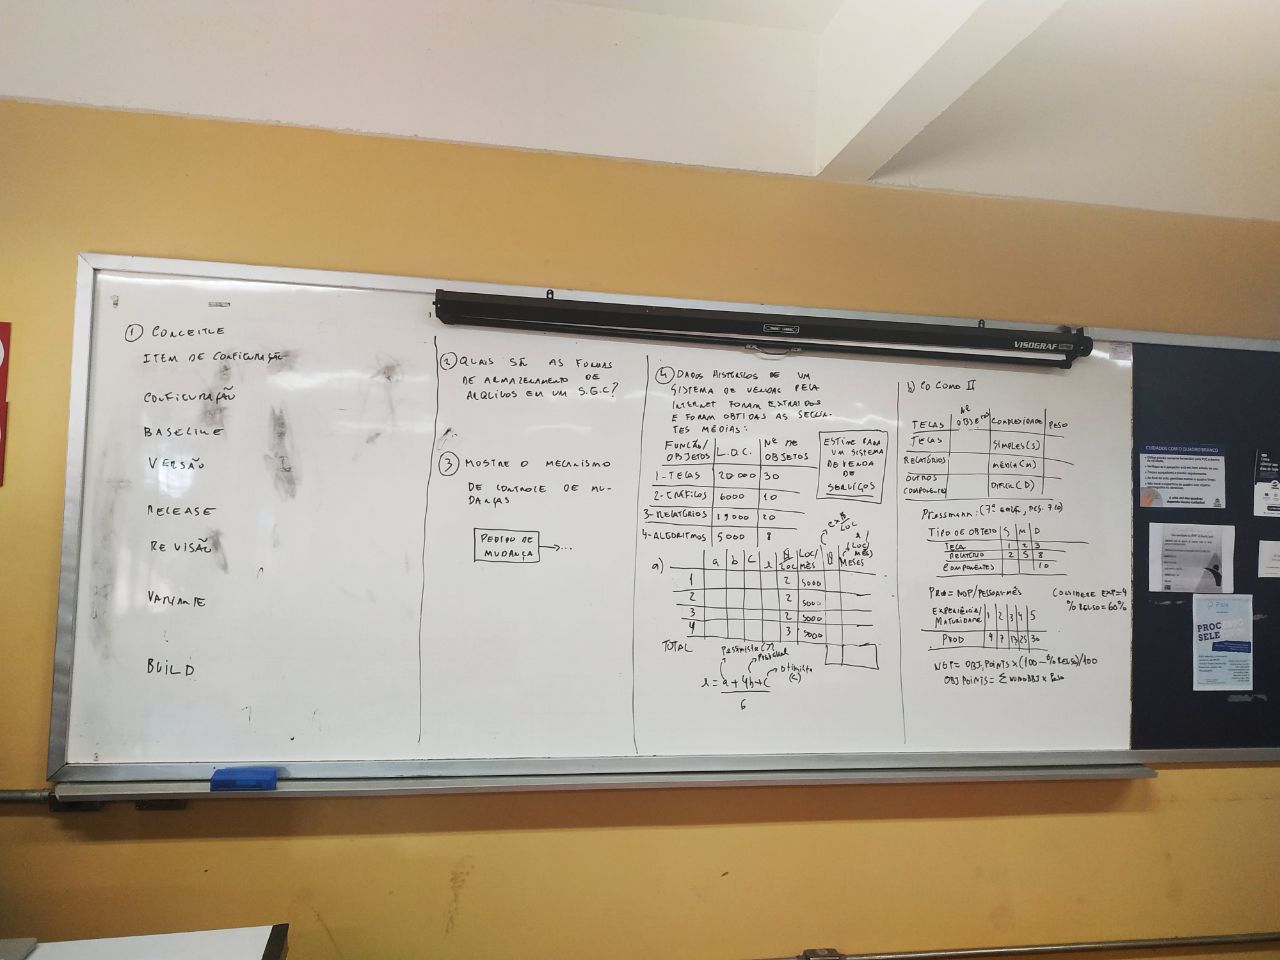 1 CONCEITUE
ITEM DE CONFIGURAÇÃO
CONFIGURAÇÃO
BASELINE
VERSÃO
RELEASE
REVISÃO
VARIANTE
BUILD
2 QUAIS SÃO AS FORMAS
DE ARMAZENAMENTO DE
ARQUIVOS EM UM S.G.C?
3 MOSTRE O MECANISMO
DE CONTROLE DE MU-
DANÇAS
PEDIDO DE
MUDANÇA → ...
4 DADOS HISTÓRICOS DE UM
SISTEMA DE VENDAS PELA
INTERNET FORAM EXTRAIDOS
E FORAM OBTIDAS AS SEGUIN-
TES MÉDIAS:
FUNÇÃO/OBJETOS L.O.C. Nº DE OBJETOS
1-TELAS 20000 30
2-GRÁFICOS 6000 10
3-RELATÓRIOS 19000 20
4-ALGORITMOS 5000 8
ESTIME PARA
UM SISTEMA
DE VENDA
DE
SERVIÇOS
a)
a b c x $/LOC LOC/MÊS $ MESES
1 2 5000
2 2 5000
3 2 5000
4 3 5000
TOTAL
x = a + 4b + c
6
b) COCOMO II
TELAS Nº OBJETOS COMPLEXIDADE PESO
TELAS SIMPLES(S)
RELATÓRIOS MÉDIA(M)
OUTROS COMPONENTES DIFÍCIL(D)
TIPO DE OBJETO S M D
TELA 1 2 3
RELATÓRIO 2 5 8
COMPONENTES 10
PROD = NOP/PESSOA-MÊS
CONSIDERE EXP=4
% REUSO=60%
EXPERIÊNCIA/MATURIDADE 1 2 3 4 5
PROD 4 7 13 25 30
NOP= OBJ.POINTS x (100 - % REUSO)/100
VISOGRAF
CUIDADOS COM O QUADRO BRANCO